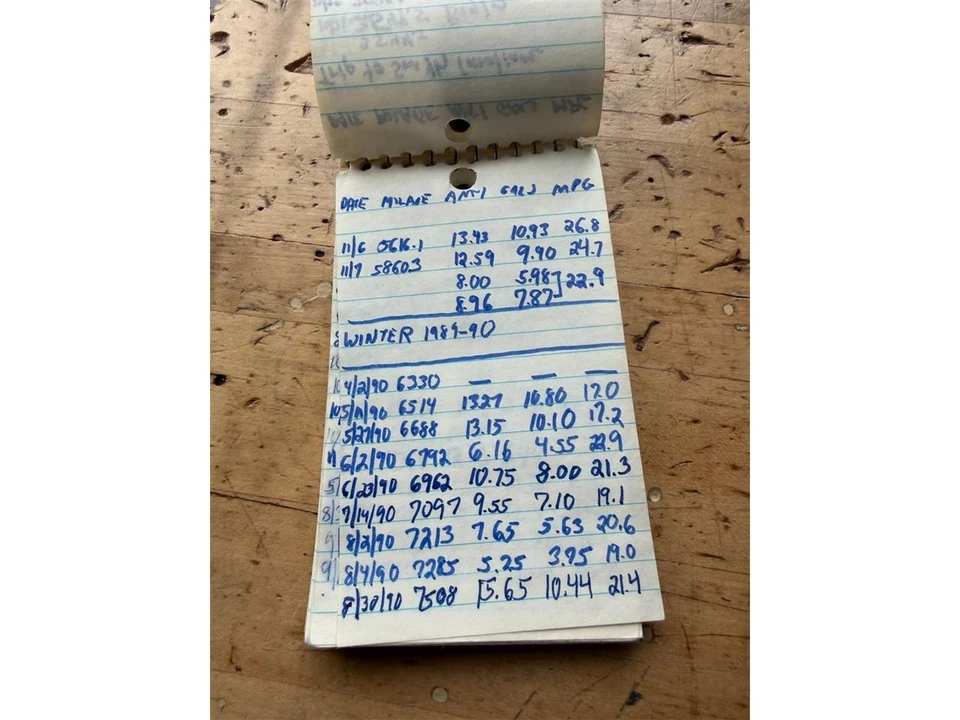 DATE MILAGE AMT GALS MPG
11/6 5616.1 13.43 10.93 26.8
11/7 5860.3 12.59 9.90 24.7
8.00 5.98
22.9
8.96 7.87
WINTER 1989-90
4/2/90 6330 — — —
5/11/90 6514 13.27 10.80 17.0
5/27/90 6688 13.15 10.10 17.2
6/2/90 6792 6.16 4.55 22.9
6/23/90 6962 10.75 8.00 21.3
7/14/90 7097 9.55 7.10 19.1
8/2/90 7213 7.65 5.63 20.6
8/4/90 7285 5.25 3.75 19.0
8/30/90 7508 15.65 10.44 21.4